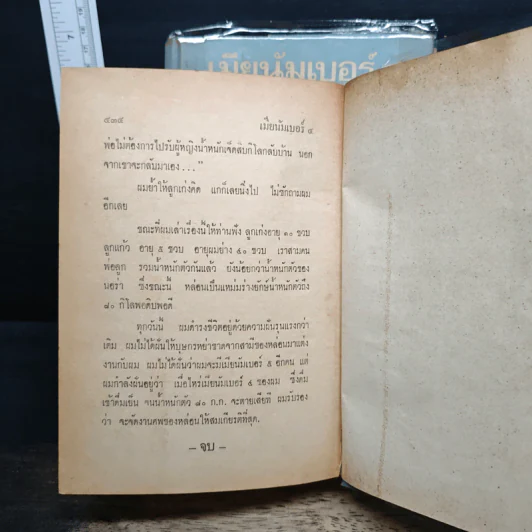 เมียนัมเบอร์
๕๓๕
เมียนัมเบอร์ ๔
พ่อไม่ต้องการไปรับผู้หญิงน้ำหนักเจ็ดสิบกิโลกลับบ้าน นอก
จากเขาจะกลับมาเอง . . ."
ผมย้ำให้ลูกเก่งคิด แกก็เลยนิ่งไป ไม่ซักถามผม
อีกเลย
ขณะที่ผมเล่าเรื่องนี้ให้ท่านฟัง ลูกเก่งอายุ ๑๐ ขวบ
ลูกแก้ว อายุ ๕ ขวบ อายุผมย่าง ๔๐ ขวบ เราสามคน
พ่อลูก รวมน้ำหนักตัวกันแล้ว ยังน้อยกว่าน้ำหนักตัวของ
นอร่า ซึ่งขณะนี้ หล่อนเป็นแหม่มร่างยักษ์น้ำหนักตัวถึง
๘๐ กิโลพอดิบพอดี
ทุกวันนี้ ผมดำรงชีวิตอยู่ด้วยความฝันรุนแรงกว่า
เดิม ผมไม่ได้ฝันให้บุษกรหย่าขาดจากสามีของหล่อนมาแต่ง
งานกับผม ผมไม่ได้ฝันว่าผมจะมีเมียนัมเบอร์ ๕ อีกคน แต่
ผมกำลังฝันอยู่ว่า เมื่อไหร่เมียนัมเบอร์ ๔ ของผม ซึ่งดื่ม
เช้าดื่มเย็น จนน้ำหนักตัว ๘๐ ก.ก. จะตายเสียที ผมรับรอง
ว่า จะจัดงานศพของหล่อนให้สมเกียรติที่สุด.
– จบ –